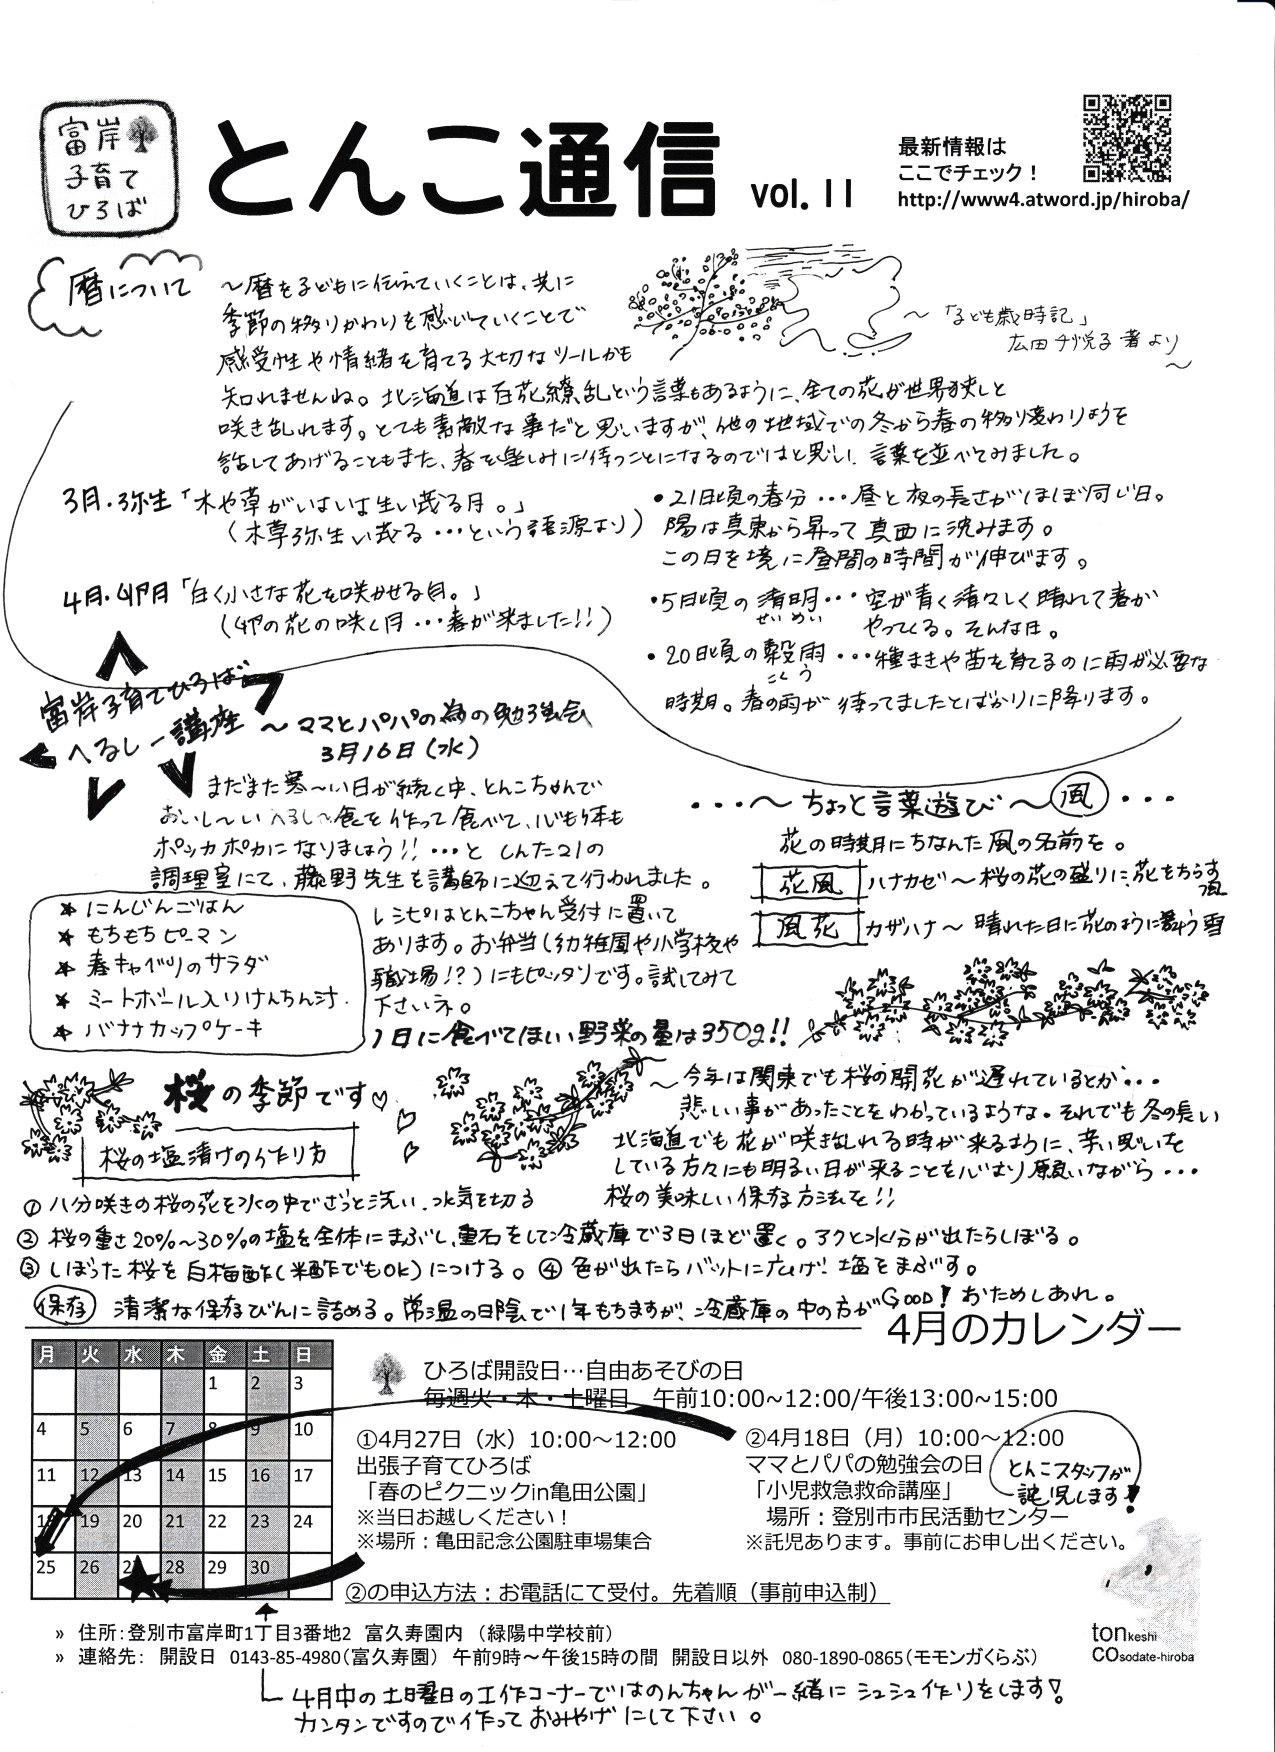 富岸
子育て
ひろば
とんこ通信 vol. 11
最新情報は
ここでチェック！
http://www4.atword.jp/hiroba/
暦について
～暦を子どもに伝えていくことは、共に
季節の移りかわりを感じていくことで
感受性や情緒を育てる大切なツールかも
知れませんね。北海道は百花繚乱という言葉もあるように、全ての花が世界狭しと
咲き乱れます。とても素敵な事だと思いますが、他の地域での冬から春の移り変わりようを
話してあげることもまた、春を楽しみに待つことになるのではと思い、言葉を並べてみました。
～「子ども歳時記」
広田千悦子著より～
3月・弥生「木や草がいよいよ生い茂る月。」
（木草弥生い茂る…という語源より）
4月・卯月「白く小さな花を咲かせる月。」
（卯の花の咲く月…春が来ました!!）
・21日頃の春分…昼と夜の長さがほぼ同じ日。
陽は真東から昇って真西に沈みます。
この日を境に昼間の時間が伸びます。
・5日頃の清明…空が青く清々しく晴れて春が
せいめい
やってくる。そんな日。
・20日頃の穀雨…種まきや苗を育てるのに雨が必要な
こくう
時期。春の雨が待ってましたとばかりに降ります。
富岸子育てひろば
へるしー講座
～ママとパパの為の勉強会
3月16日（水）
まだまだ寒～い日が続く中、とんこちゃんで
おいし～いへるし～食を作って食べて、心も体も
ポッカポカになりましょう!!…と しんた21の
調理室にて、藤野先生を講師に迎えて行われました。
★ にんじんごはん
★ もちもちピーマン
★ 春キャベツのサラダ
★ ミートボール入りけんちん汁
★ バナナカップケーキ
レシピはとんこちゃん受付に置いて
あります。お弁当（幼稚園や小学校や
職場!?）にもピッタリです。試してみて
下さいネ。
1日に食べてほしい野菜の量は350g!!
・・・～ちょっと言葉遊び～風・・・
花の時期にちなんだ風の名前を。
花風 ハナカゼ～桜の花の盛りに、花をちらす風
風花 カザハナ～晴れた日に花のように舞う雪
桜の季節です♡
桜の塩漬けの作り方
～今年は関東でも桜の開花が遅れているとか・・・
悲しい事があったことをわかっているような。それでも冬の長い
北海道でも花が咲き乱れる時が来るように、辛い思いを
している方々にも明るい日が来ることを心より願いながら・・・
桜の美味しい保存方法を!!
① 八分咲きの桜の花を水の中でさっと洗い、水気を切る
② 桜の重さ20%～30%の塩を全体にまぶし、重石をして冷蔵庫で3日ほど置く。アクと水分が出たらしぼる。
③ しぼった桜を白梅酢（米酢でもOK）につける。 ④ 色が出たらバットに広げ、塩をまぶす。
保存 清潔な保存びんに詰める。常温の日陰で1年もちますが、冷蔵庫の中の方がGOOD! おためしあれ。
4月のカレンダー
月 火 水 木 金 土 日
1 2 3
4 5 6 7 8 9 10
11 12 13 14 15 16 17
18 19 20 21 22 23 24
25 26 27 28 29 30
ひろば開設日…自由あそびの日
毎週火・木・土曜日 午前10:00～12:00/午後13:00～15:00
①4月27日（水）10:00～12:00
出張子育てひろば
「春のピクニックin亀田公園」
※当日お越しください！
※場所：亀田記念公園駐車場集合
②4月18日（月）10:00～12:00
ママとパパの勉強会の日
「小児救急救命講座」
場所：登別市市民活動センター
※託児あります。事前にお申し出ください。
とんこスタッフが
託児します!
②の申込方法：お電話にて受付。先着順（事前申込制）
» 住所：登別市富岸町1丁目3番地2 富久寿園内 （緑陽中学校前）
» 連絡先： 開設日 0143-85-4980（富久寿園） 午前9時～午後15時の間 開設日以外 080-1890-0865（モモンガくらぶ）
tonkeshi
COsodate-hiroba
4月中の土曜日の工作コーナーではのんちゃんが一緒にシュシュ作りをします!
カンタンですので作っておみやげにして下さい。